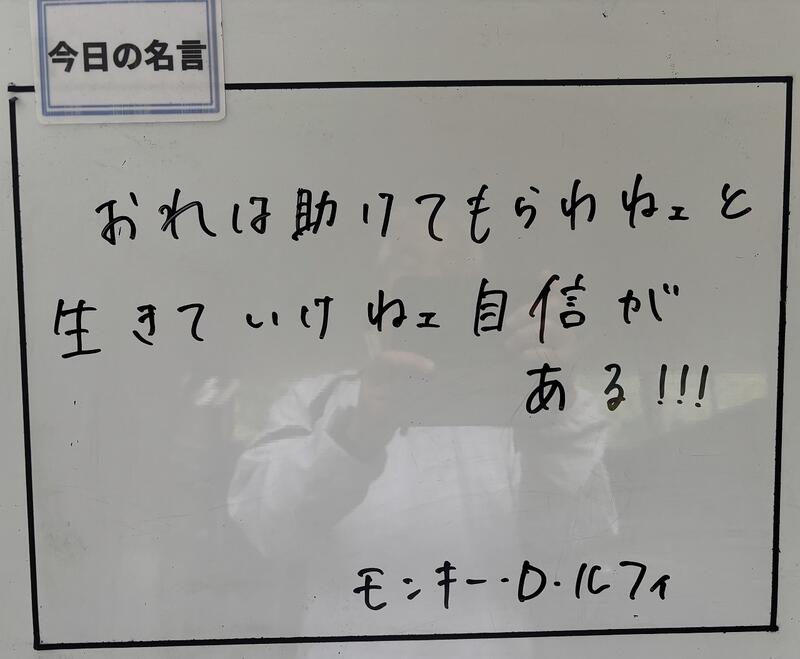 今日の名言
おれは助けてもらわねェと
生きていけねェ自信が
ある!!!
モンキー・D・ルフィ